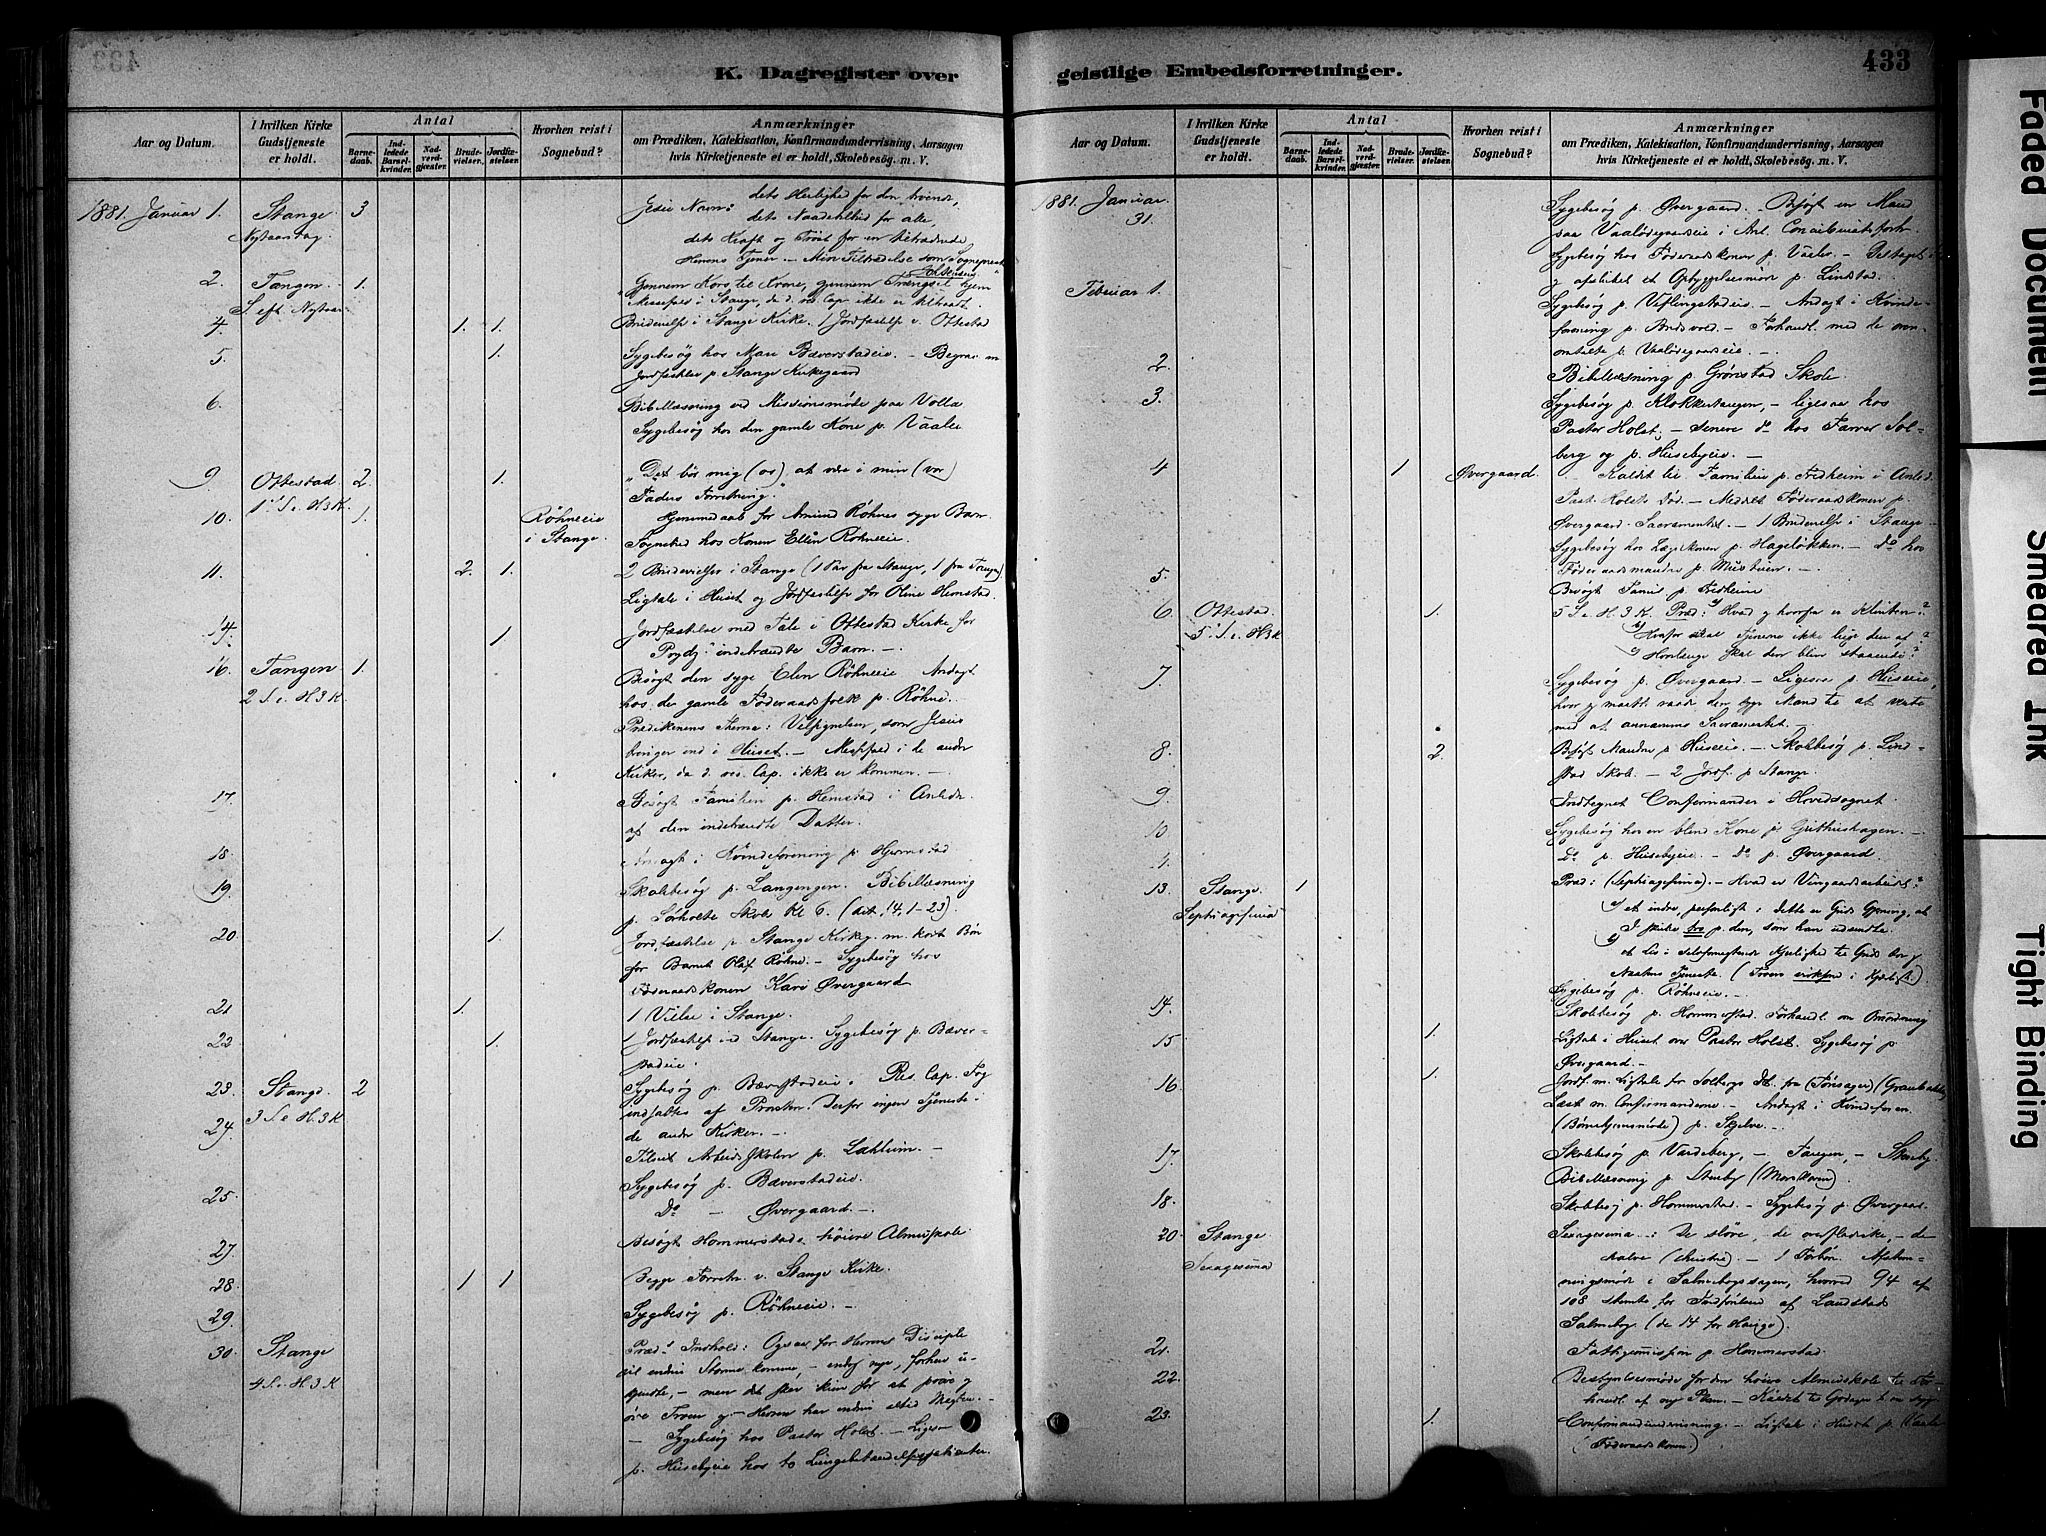 433
K. Dagregister over
geistlige Embedsforretninger.
Aar og Datum.
I hvilken Kirke Gudstjeneste er holdt.
Antal
Barnedaab.
Indledede Barselkvinder.
Nadverdgjæster.
Brudevielser.
Jordfæstelser.
Hvorhen reist i Sognebud?
Anmærkninger
om Prædiken, Katekisation, Konfirmandundervisning, Aarsagen
hvis Kirketjeneste ei er holdt, Skolebesög. m. V.
1881. Januar 1. Stange 3 Jesu Navn: dets Herlighed for den troende,
Nytaarsdag dets Naadetilbud for alle,
dets Kraft og Trøst for en tiltrædende
Herrens Tjener. – Min Tiltrædelse som Sognepræst
2. Tangen 1. Gjennem Kors til Krone, gjennem Trængsel hjem
S. eft. Nytaar Messefald i Stange, da d. res. Cap. ikke er tiltraadt.
4. 1. 1. Brudevielse i Stange Kirke. 1 Jordfæstelse v. Ottestad
5. 1. Sygebesøg hos Mari Bæverstadeie. – Begrav. m
Jordfæstelse p. Stange Kirkegaard
6. Bibellæsning ved Missionsmøde paa Volla
Sygebesøg hos den gamle Kone p. Vaaler
9. Ottestad 2. 1. "Det bør mig (os) at være i min (vor)
1ste S. e. H3K Faders Forretning."
10. 1. Røhneeie Hjemmedaab for Amund Røhnes syge Barn.
i Stange. Sognebud hos Konen Ellen Røhneeie.
11. 2. 1. 2 Brudevielser i Stange (1 Par fra Stange, 1 fra Tangen)
Ligtale i Huset og Jordfæstelse for Oline Hemstad.
14. 1 Jordfæstelse med Tale i Ottestad Kirke for
indebrændte Barn. –
16. Tangen 1. Besøgt den syge Elen Røhneeie Andagt
2 S. e. H 3 K hos de gamle Føderaadsfolk p. Røhne.
Prædikenens Thema: Velsignelsen, som Jesus
bringer ind i Huset. – Messefald i de andre
Kirker, da d. res. Cap. ikke er kommen. –
17. Besøgt Familien p. Hemstad i Anledn.
af den indebrændte Datter.
18. Andagt i Kvindeforening p. Hjemstad
19. Skolebesøg p. Langengen. Bibellæsning
p. Sørholte Skole Kl 6. (14, 1–23).
20 1. Jordfæstelse p. Stange Kirkeg. m. kort Bøn
for Barnet Olaf Røhne. – Sygebesøg hos
Føderaadskonen Kari Øvergaard
21 1. 1 Vielse i Stange.
22 1. 1 Jordfæstelse ved Stange. Sygebesøg p. Bæver-
stadeie.
23. Stange 2 Sygebesøg p. Bæverstadeie. Res. Cap. Fog
3 S. e H. 3 K indsattes af Provsten. Derfor ingen Tjeneste i
24. de andre Kirker. –
Tilset Arbeidsskolen p. Lahlum. –
Sygebesøg p. Bæverstadeie.
25. Do – Øvergaard. –
Besøgt Hommerstads høiere Almuskole
27.
28. 1 1 Begge Forretn. v. Stange Kirke.
29. Sygebesøg p. Røhneeie. –
30. Stange Præd. Indhold: Ogsaa for Herrens Disciple
4 S. e. H. 3 K vil endnu Storme komme, – endog nye, forhen u-
kjendte, – men det sker kun for at prøve og
øve Troen og – Herren har endnu altid Magten
– Sygebesøg hos Pastor Holst. – Liges –
p. Husebyeie hos to Lungebetændelsespatienter.
Aar og Datum.
I hvilken Kirke Gudstjeneste er holdt.
Antal
Barnedaab.
Indledede Barselkvinder.
Nadverdgjæster.
Brudevielser.
Jordfæstelser.
Hvorhen reist i Sognebud?
Anmærkninger
om Prædiken, Katekisation, Konfirmandundervisning, Aarsagen
hvis Kirketjeneste ei er holdt, Skolebesög. m. V.
1881. Januar. Sygebesøg p. Øvergaard. Besøgt en Mand
31. paa Vaalødegaardseie i Anl.
Sygebesøg hos Føderaadskonen p. Vaaler. – Deltaget i
og afsluttet et Opbyggelsesmøde p. Lindstad.
Februar 1. Sygebesøg p. Veflingstadeie. – Andagt i Kvinde-
forening p. – Forhandl. med de oven-
omtalte p. Vaalødegaardseie. –
2. Bibellæsning p. Grønstad Skole.
3. Sygebesøg p. Klokkertangen, – ligesaa hos
Pastor Holst, – senere do hos Farver Sol-
berg og p. Husebyeie. –
4 1 Øvergaard. Kaldt til Familien p. Fredheim i Anled.
Past. Holsts Død. – Meddelt Føderaadskonen p.
Øvergaard Sacramentet. – 1 Brudevielse i Stange.
Sygebesøg hos Lægskonen p. Hageløkken. – Do hos
5. Føderaadsmanden p. –
Besøgt Famil. p. Fredheim
6. Ottestad. 1. 5 S. e. H. 3 K. Præd: Hvad og hvorfra er Klinten?
5. S. e. H3K Hvorfor skal Tjenerne ikke luge den af?
Hvorlænge skal den blive staaende?
7. Sygebesøg p. Øvergaard. – Ligesaa p. Huseeie,
hvor jeg maatte raade den syge Mand til at vente
med at annamme Sacramentet. –
8. 2. Besøgt Manden p. Huseeie. – Skolebesøg p. Lind-
stad Skole. – 2 Jordf. p Stange.
9. Indtegnet Confirmander i Hovedsognet
10 Sygebesøg hos en blind Kone p. Guthushagen. –
11. Do p. Husebyeie. – Do p. Øvergaard.
13. Stange. 1 Præd: (Septuagesima). – Hvad er Viingaardsarbeidet?
Septuagesima et indre, personligt: dette er Guds Gjerning, at
I skulle tro p. den, som han udsendte.
et Liv i selvfornegtende Kjerlighed til Guds og
Næstens Tjeneste (Troen virksom i Kjærligh.)
Sygebesøg p. Røhneeie. –
14. Skolebesøg p. Hommerstad. Forhandl. om Omordning
15 1. Ligtale i Huset over Pastor Holst. Sygebesøg p
Øvergaard. –
16 1. Jordf. m. Ligtale for Solbergs Dt. fra (Tønsager)
Læst m. Confirmanderne – Andagt i Kvindeforen.
(Børnehjemsmøde) p. Skjelve. –
17. Skolebesøg p. Vardeberg, – Tangen, – Stenby.
Bibellæsning p. Stenby
18. Skolebesøg p. Hommerstad. – Sygebesøg p. Øvergaard.
20. Stange Sexagesima: De sløve, de overfladiske, – de
Sexagesima halve (Christne). – 1 Forbøn. Afstem-
ningsmøde i Salmebogssagen, hvorved 94 af
108 stemte for Indførelsen af Landstads
Salmebog (de 14 for Hauges).
21. Fattigcommission p. Hommerstad.
22. Bestyrelsesmøde for den høiere Almueskole til For-
handl. af ny Plan.
23. 1. Confirmandundervisning. – Ligtale i Huset p. Vaaler
(Føderaadskonen)
Faded Document
Smeared Ink
Tight Binding